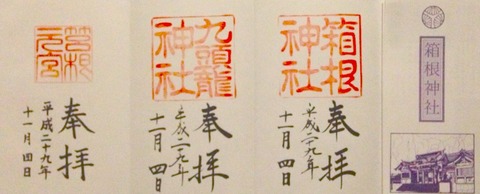 箱根神社
箱根
神社
奉拝
平成二九年
十一月四日
九頭龍
神社
奉拝
平成二九年
十一月四日
筥根
元宮
奉拝
平成二十九年
十一月四日